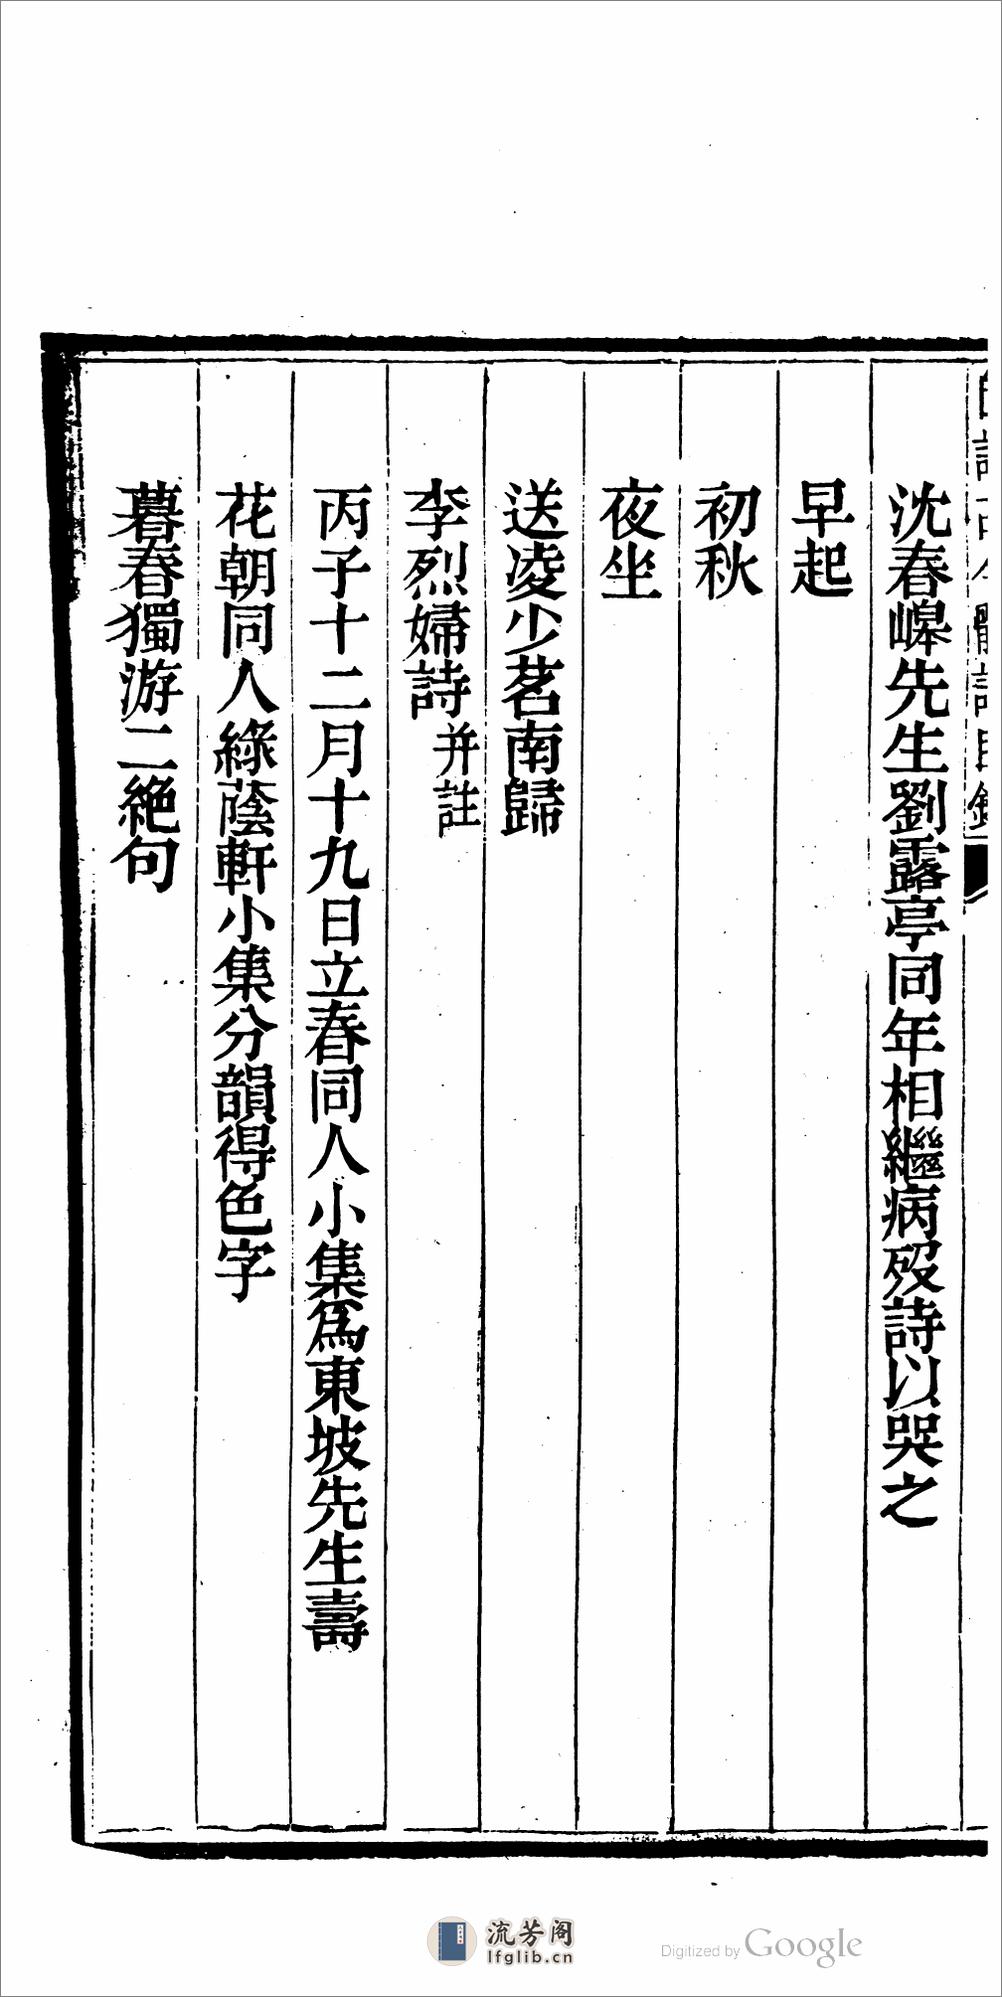 沈春嶧先生劉露亭同年相繼病歿詩以哭之
早起
初秋
夜坐
送凌少茗南歸
李烈婦詩并註
丙子十二月十九日立春同人小集爲東坡先生壽
花朝同人綠蔭軒小集分韻得色字
暮春獨游二絶句
流芳阁
lfglib.cn
Digitized by Google